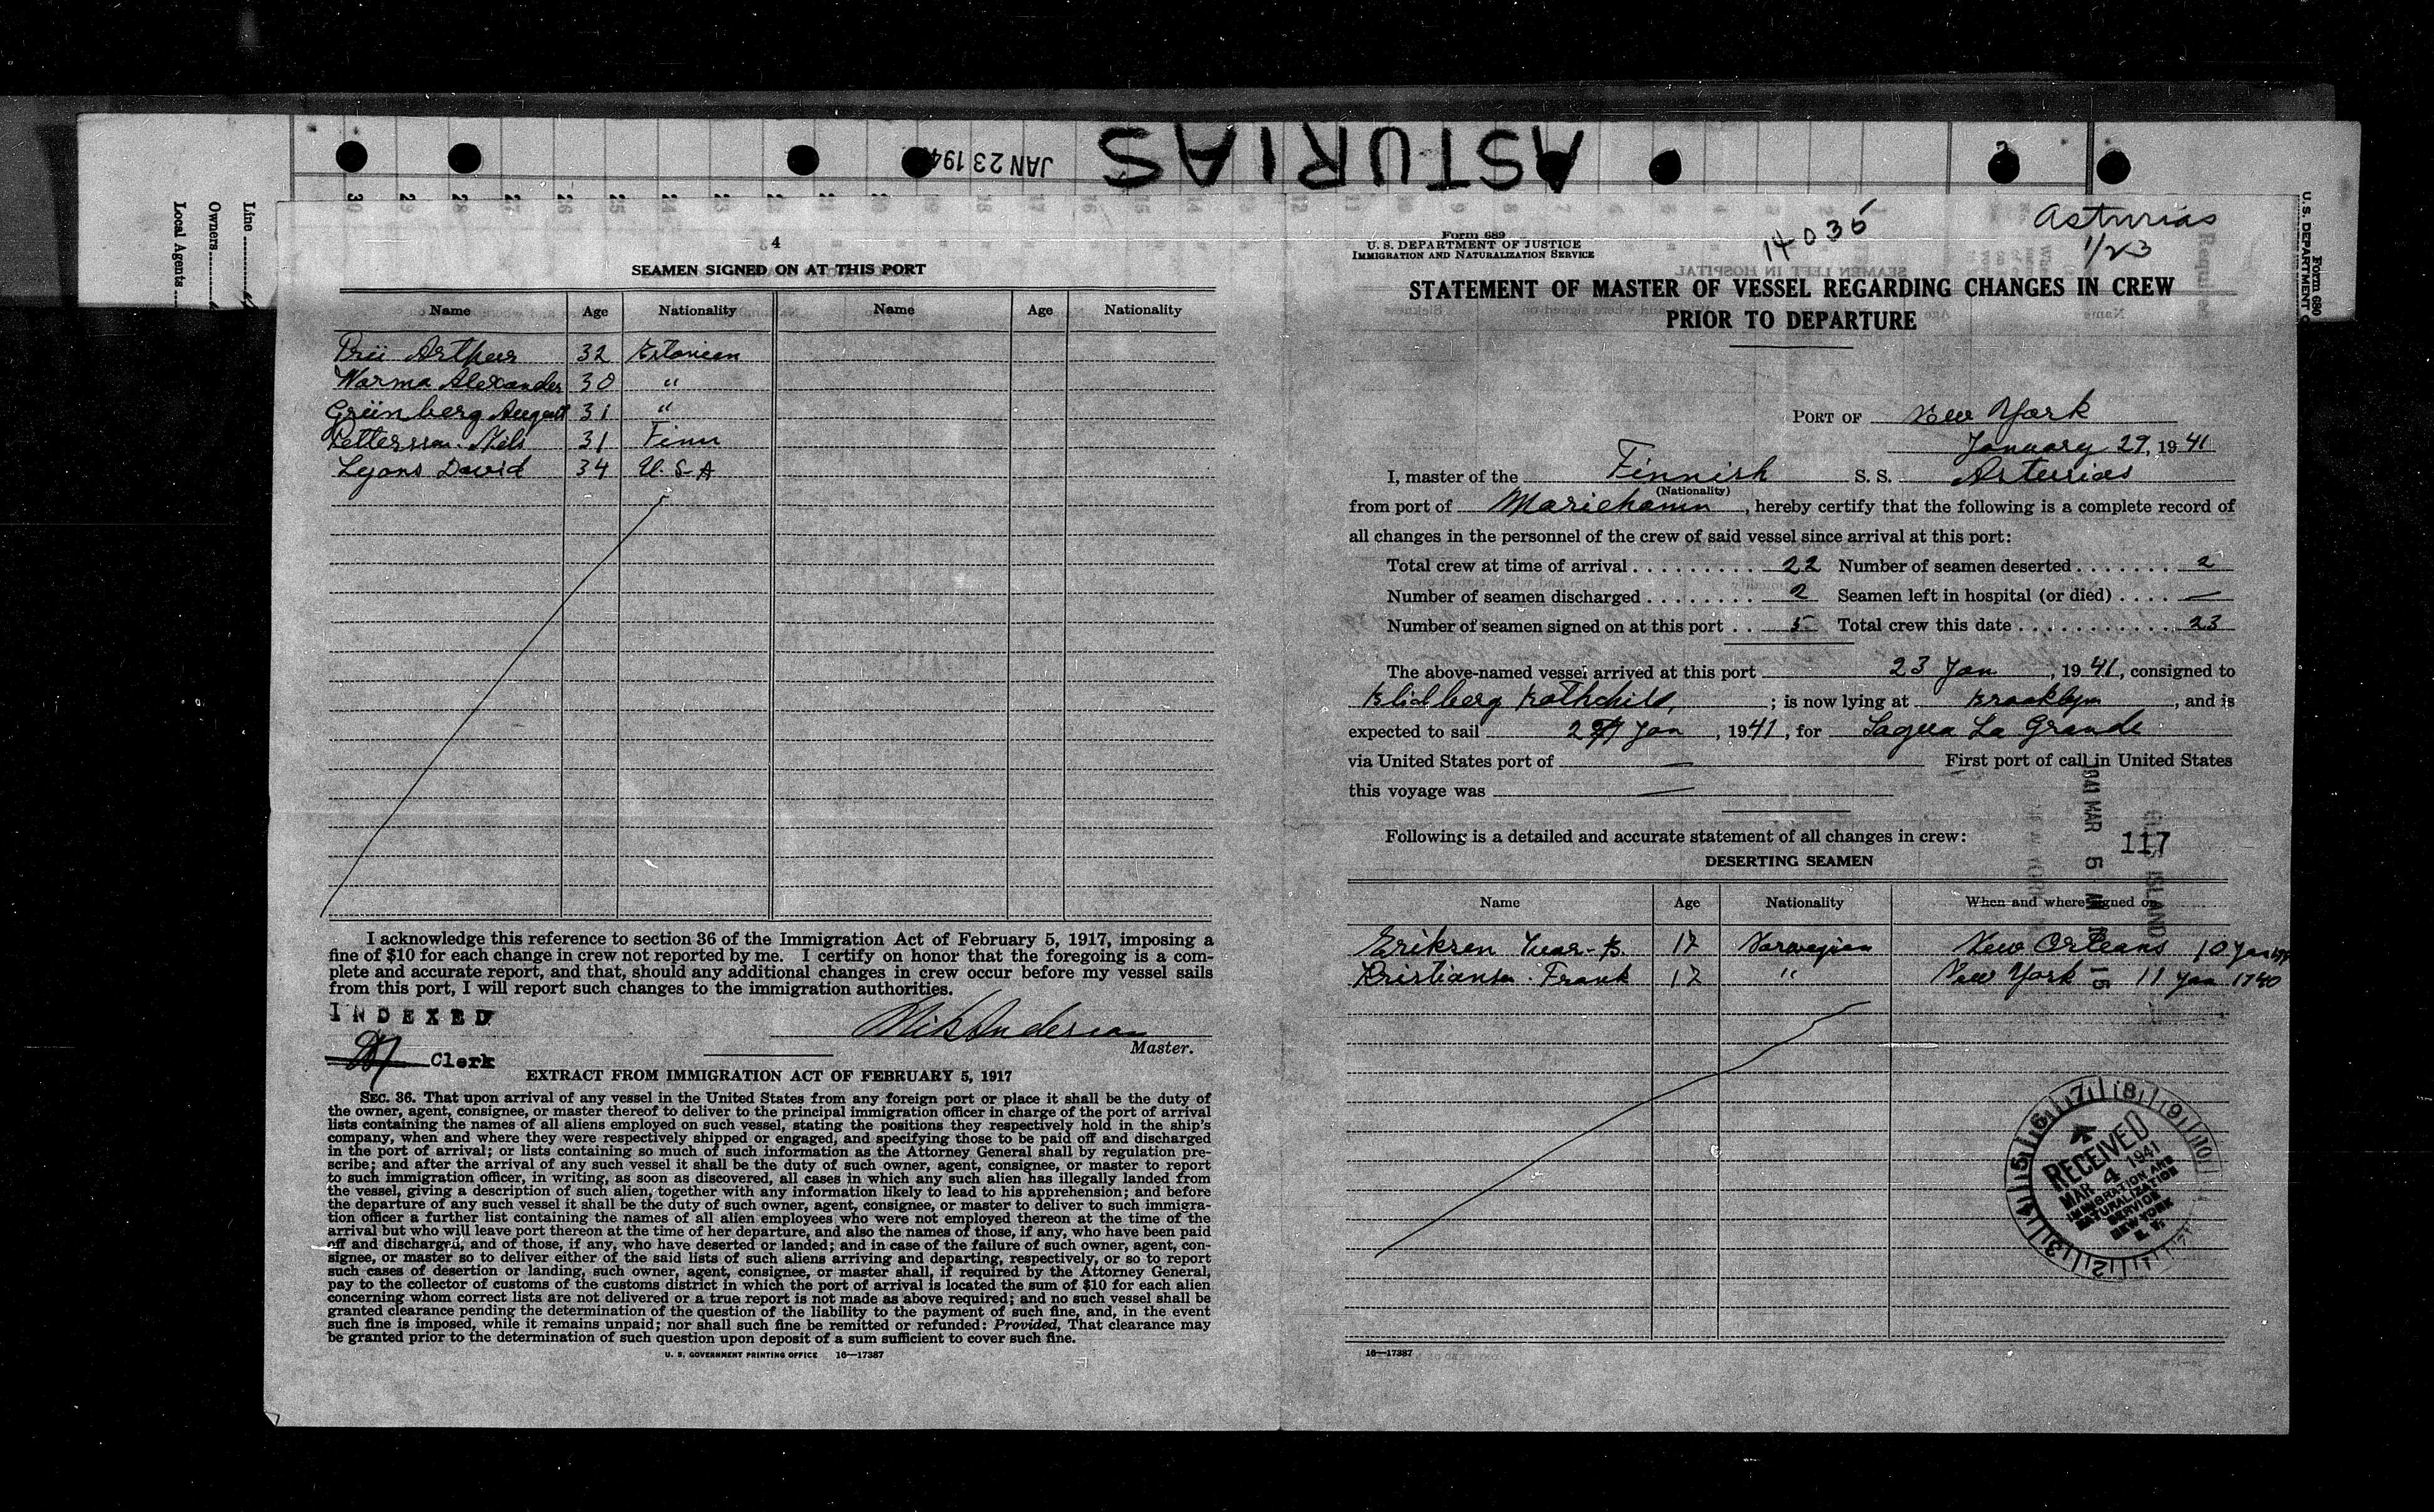 Line
Owners
Local Agents
JAN 23 194
ASTURIAS
30 29 28 27 26 25 24 23 22 21 20 19 18 17 16 15 14 13 12 11 10 9 8 7 6 5 4 3 2
4
SEAMEN SIGNED ON AT THIS PORT
Name Age Nationality Name Age Nationality
Prii Arthur 32 Estonian
Warma Alexander 30 "
Grünberg August 31 "
Pettersson. Nils 31 Finn
Lyons David 34 U.S.A
I acknowledge this reference to section 36 of the Immigration Act of February 5, 1917, imposing a
fine of $10 for each change in crew not reported by me. I certify on honor that the foregoing is a com-
plete and accurate report, and that, should any additional changes in crew occur before my vessel sails
from this port, I will report such changes to the immigration authorities.
INDEXED
Clerk
Anderson
Master.
EXTRACT FROM IMMIGRATION ACT OF FEBRUARY 5, 1917
SEC. 36. That upon arrival of any vessel in the United States from any foreign port or place it shall be the duty of
the owner, agent, consignee, or master thereof to deliver to the principal immigration officer in charge of the port of arrival
lists containing the names of all aliens employed on such vessel, stating the positions they respectively hold in the ship's
company, when and where they were respectively shipped or engaged, and specifying those to be paid off and discharged
in the port of arrival; or lists containing so much of such information as the Attorney General shall by regulation pre-
scribe; and after the arrival of any such vessel it shall be the duty of such owner, agent, consignee, or master to report
to such immigration officer, in writing, as soon as discovered, all cases in which any such alien has illegally landed from
the vessel, giving a description of such alien, together with any information likely to lead to his apprehension; and before
the departure of any such vessel it shall be the duty of such owner, agent, consignee, or master to deliver to such immigra-
tion officer a further list containing the names of all alien employees who were not employed thereon at the time of the
arrival but who will leave port thereon at the time of her departure, and also the names of those, if any, who have been paid
off and discharged, and of those, if any, who have deserted or landed; and in case of the failure of such owner, agent, con-
signee, or master so to deliver either of the said lists of such aliens arriving and departing, respectively, or so to report
such cases of desertion or landing, such owner, agent, consignee, or master shall, if required by the Attorney General,
pay to the collector of customs of the customs district in which the port of arrival is located the sum of $10 for each alien
concerning whom correct lists are not delivered or a true report is not made as above required; and no such vessel shall be
granted clearance pending the determination of the question of the liability to the payment of such fine, and, in the event
such fine is imposed, while it remains unpaid; nor shall such fine be remitted or refunded: Provided, That clearance may
be granted prior to the determination of such question upon deposit of a sum sufficient to cover such fine.
U. S. GOVERNMENT PRINTING OFFICE 16—17387
Form 689
U. S. DEPARTMENT OF JUSTICE
IMMIGRATION AND NATURALIZATION SERVICE
14035
Asturias
1/23
Form 680
U. S. DEPARTMENT
STATEMENT OF MASTER OF VESSEL REGARDING CHANGES IN CREW
PRIOR TO DEPARTURE
PORT OF New York
January 29, 1941
I, master of the Finnish S. S. Asturias
(Nationality)
from port of Mariehamn, hereby certify that the following is a complete record of
all changes in the personnel of the crew of said vessel since arrival at this port:
Total crew at time of arrival 22 Number of seamen deserted 2
Number of seamen discharged 2 Seamen left in hospital (or died) —
Number of seamen signed on at this port 5 Total crew this date 23
The above-named vessel arrived at this port 23 Jan, 1941, consigned to
Blidberg Rothchild, ; is now lying at Brooklyn, and is
expected to sail 29 Jan, 1941, for Sagua La Grande
via United States port of — First port of call in United States
this voyage was —
Following is a detailed and accurate statement of all changes in crew:
117
DESERTING SEAMEN
Name Age Nationality When and where signed on
Eriksen Ivar-B. 17 Norwegian New Orleans 10 Jan
Kristiansen. Frank 17 " New York 11 Jan 1940
1941 MAR 5 AM
ELLIS ISLAND
RECEIVED
MAR 4 1941
IMMIGRATION AND
NATURALIZATION
SERVICE
NEW YORK
N. Y.
16—17387